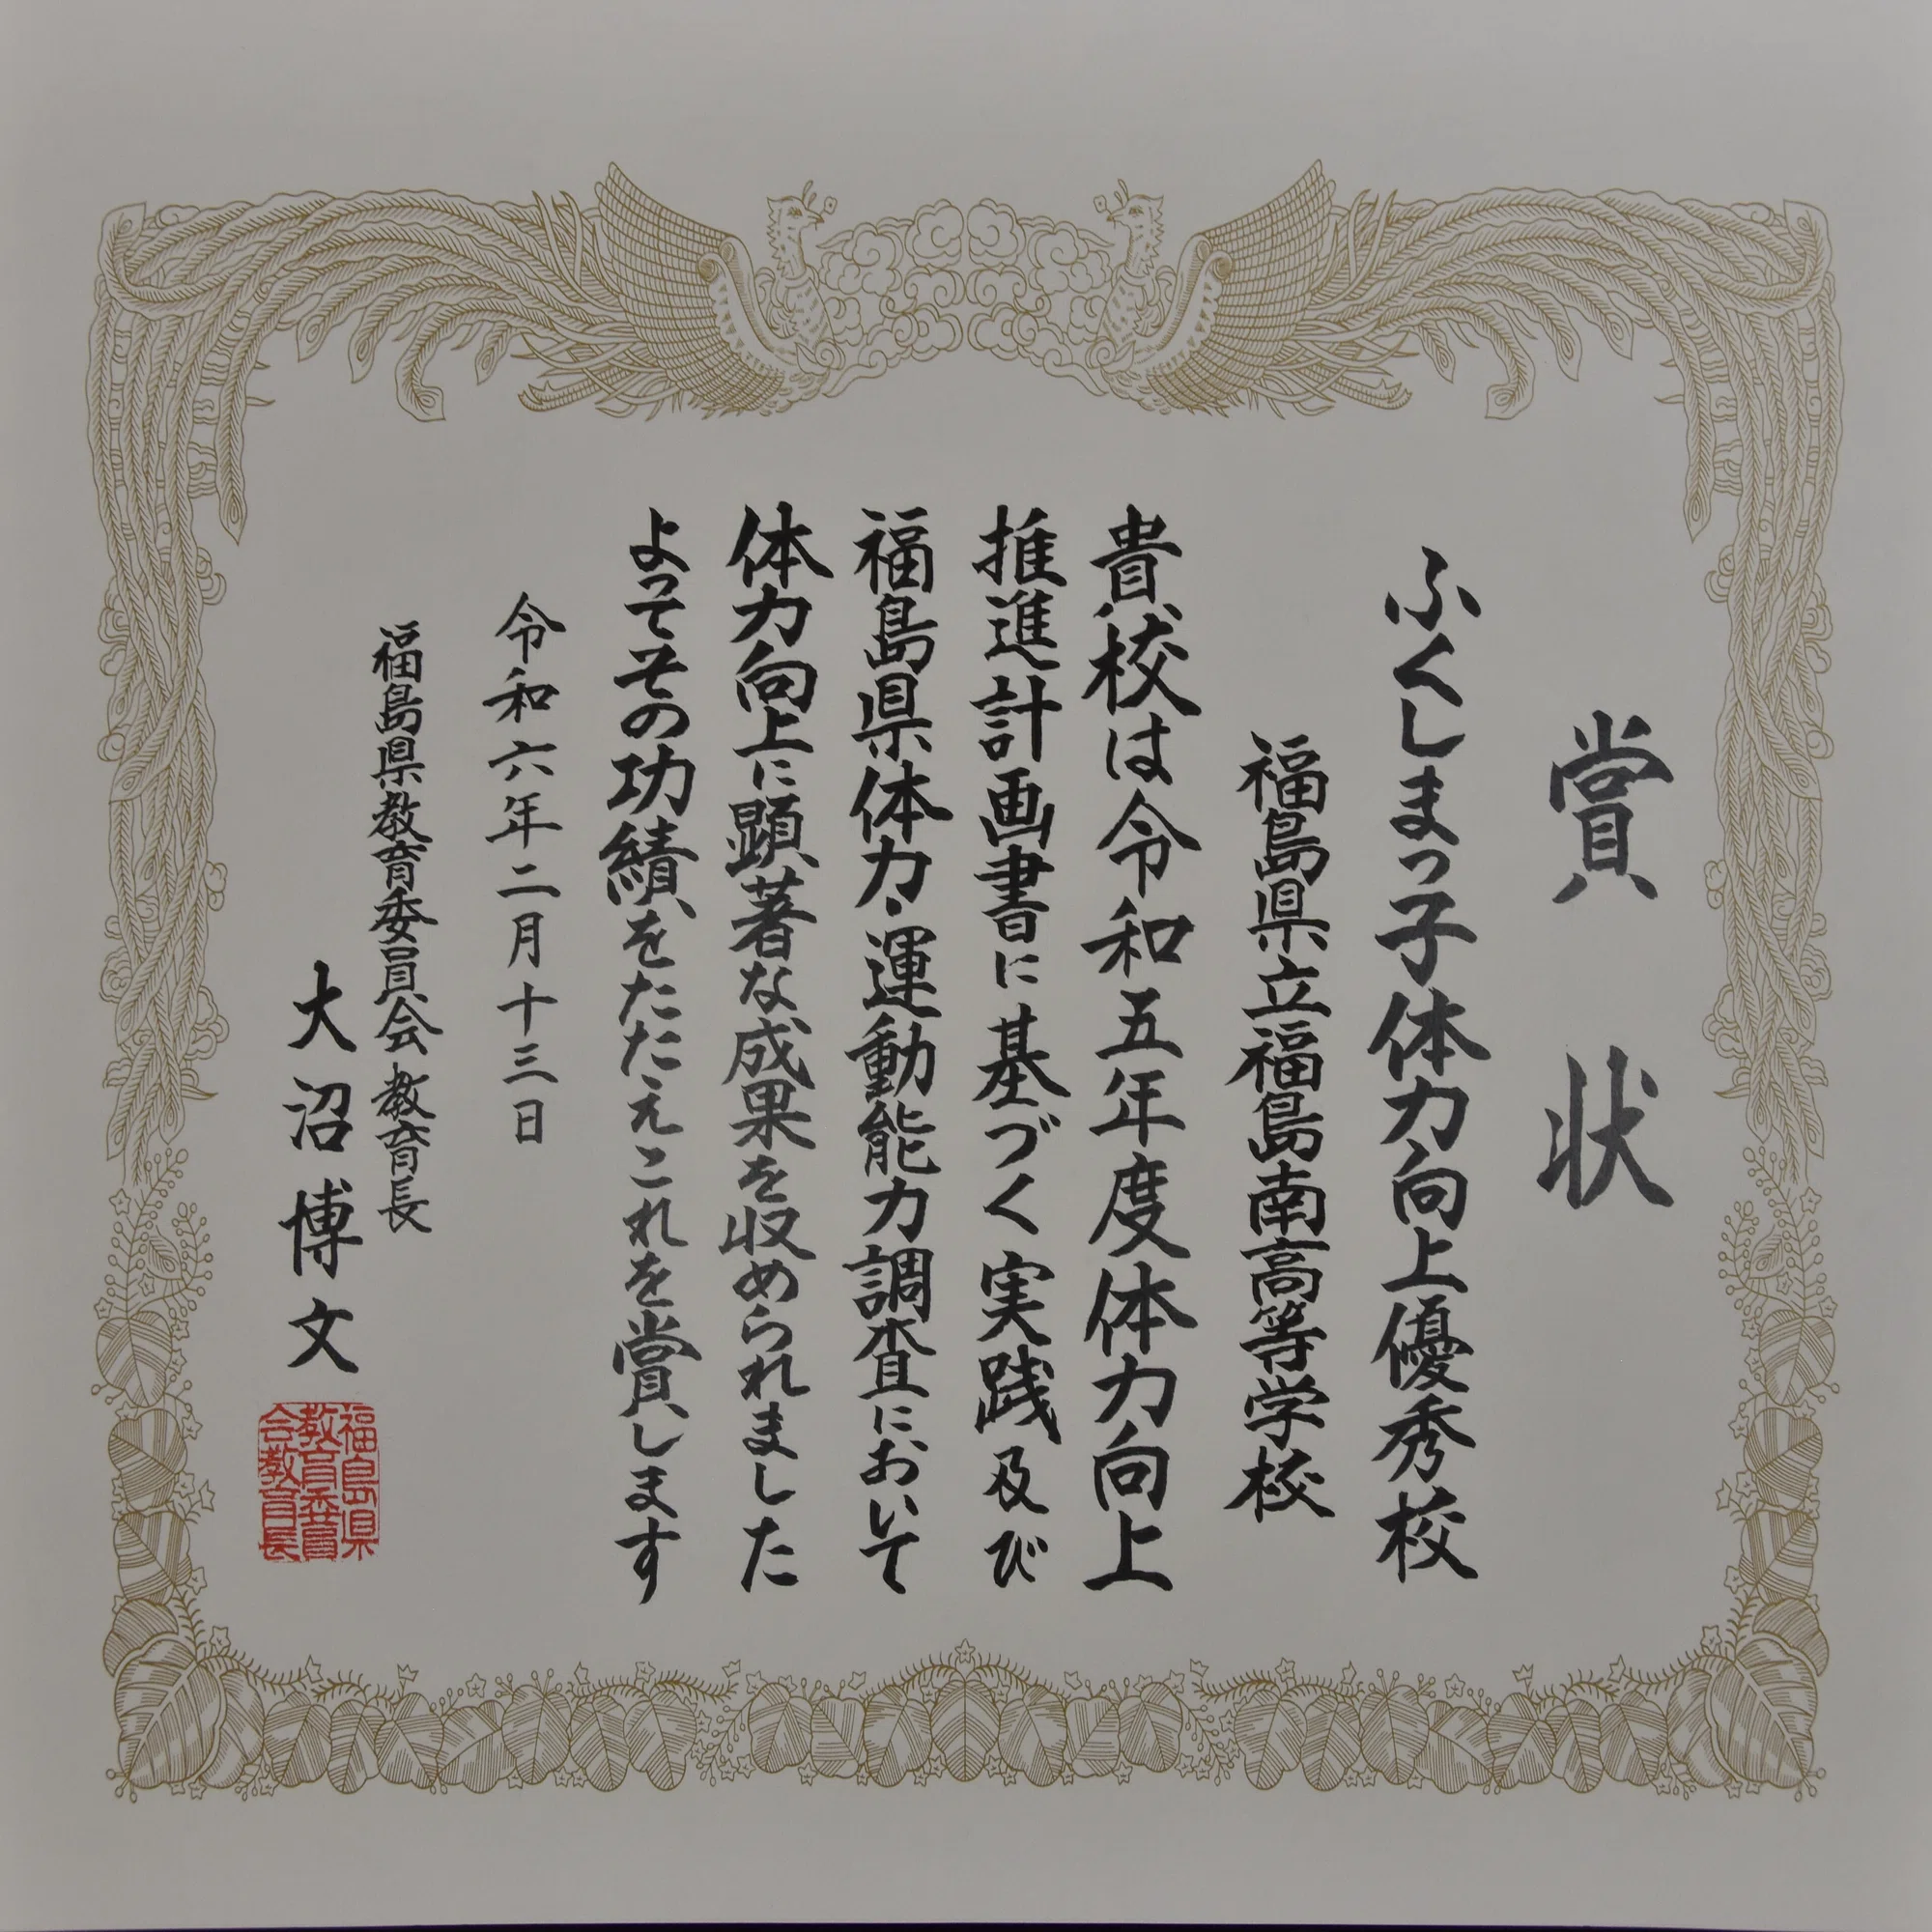 賞状
ふくしまっ子体力向上優秀校
福島県立福島南高等学校
貴校は令和五年度体力向上
推進計画書に基づく実践及び
福島県体力・運動能力調査において
体力向上に顕著な成果を収められました
よってその功績をたたえこれを賞します
令和六年二月十三日
福島県教育委員会教育長
大沼博文
福島県
教育委員
会教育長